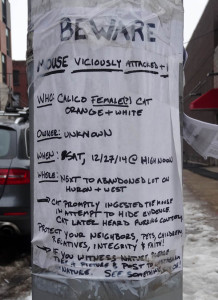 BEWARE
MOUSE VICIOUSLY ATTACKED +
WHO: CALICO FEMALE(?) CAT
ORANGE + WHITE
OWNER: UNKNOWN
WHEN: SAT, 12/27/14 @ HIGH NOON
WHERE: NEXT TO ABANDONED LOT ON
HURON + WEST
CAT PROMPTLY INGESTED THE MOUSE
IN ATTEMPT TO HIDE EVIDENCE
CAT LATER HEARD PURRING
PROTECT YOUR NEIGHBORS, PETS, CHILDREN,
RELATIVES, INTEGRITY & FAITH!
IF YOU WITNESS
A PICTURE & POST TO
NATURE. SEE SOMETHING